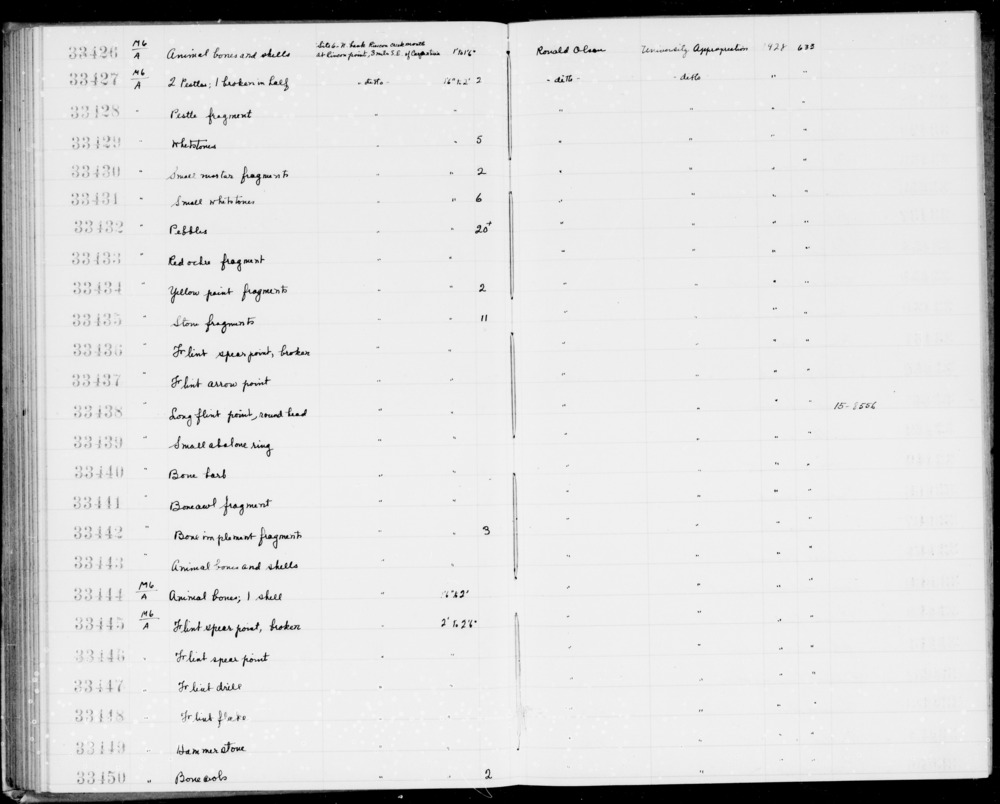 33426 M6/A Animal bones and shells Site 6. N. bank Rincon creek mouth at Rincon point, 3 mile S.E. of Carpinteria 1' to 1'6" Ronald Olson University Appropriation 1928 633
33427 M6/A 2 Pestles; 1 broken in half - ditto - 1'6" to 2' 2 - ditto - - ditto " "
33428 " Pestle fragment " " " " " "
33429 " Whetstones " " 5 " " " "
33430 " Small mortar fragments " " 2 " " " "
33431 " Small whetstones " " 6 " " " "
33432 " Pebbles " " 20+ " " " "
33433 " Red ochre fragment " " " " " "
33434 " Yellow paint fragments " " 2 " " " "
33435 " Stone fragments " " 11 " " " "
33436 " Flint spear point, broken " " " " " "
33437 " Flint arrow point " " " " " "
33438 " Long flint point, round head " " " " " " 15-8556
33439 " Small abalone ring " " " " " "
33440 " Bone barb " " " " " "
33441 " Bone awl fragment " " " " " "
33442 " Bone implement fragments " " 3 " " " "
33443 " Animal bones and shells " " " " " "
33444 M6/A Animal bones; 1 shell " 1'6" to 2' " " " "
33445 M6/A Flint spear point, broken " 2' to 2'6" " " " "
33446 " Flint spear point " " " " " "
33447 " Flint drill " " " " " "
33448 " Flint flake " " " " " "
33449 " Hammerstone " " " " " "
33450 " Bone awls " " 2 "